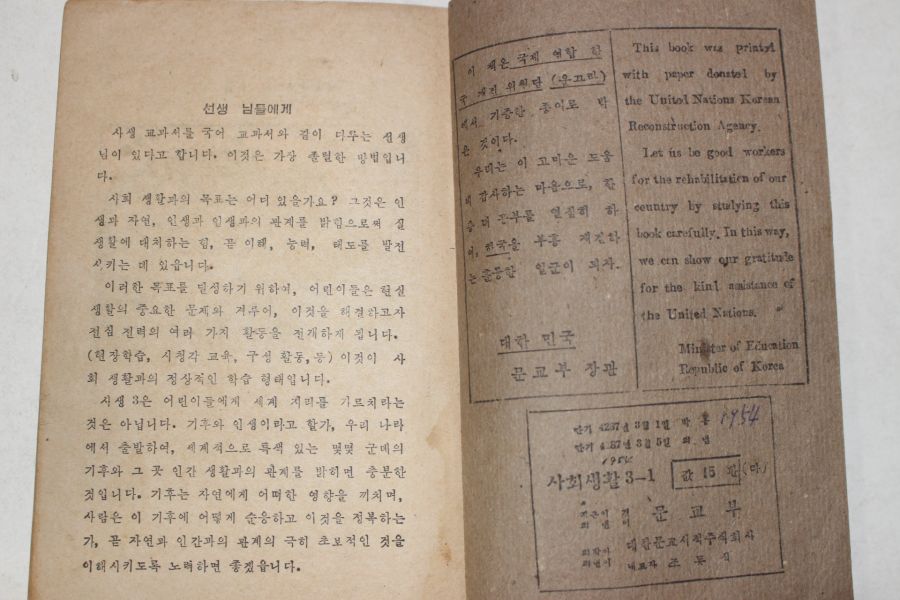 선생 님들에게
사생 교과서를 국어 교과서와 같이 다루는 선생
님이 있다고 합니다. 이것은 가장 졸렬한 방법입니
다.
사회 생활과의 목표는 어디 있을가요? 그것은 인
생과 자연, 인생과 인생과의 관계를 밝힘으로써 실
생활에 대처하는 힘, 곧 이해, 능력, 태도를 발전
시키는 데 있읍니다.
이러한 목표를 달성하기 위하여, 어린이들은 현실
생활의 중요한 문제와 겨루어, 이것을 해결하고자
전심 전력의 여러 가지 활동을 전개하게 됩니다.
(현장학습, 시청각 교육, 구성 활동, 등) 이것이 사
회 생활과의 정상적인 학습 형태입니다.
사생 3은 어린이들에게 세계 지리를 가르치라는
것은 아닙니다. 기후와 인생이라고 할가, 우리 나라
에서 출발하여, 세계적으로 특색 있는 몇몇 군데의
기후와 그 곳 인간 생활과의 관계를 밝히면 충분한
것입니다. 기후는 자연에게 어떠한 영향을 끼치며,
사람은 이 기후에 어떻게 순응하고 이것을 정복하는
가, 곧 자연과 인간과의 관계의 극히 초보적인 것을
이해시키도록 노력하면 좋겠읍니다.
이 책은 국제 연합 한
국 재건 위원단 (운끄라)
에서 기증한 종이로 박
은 것이다.
우리는 이 고마운 도움
에 감사하는 마음으로, 한
층 더 공부를 열심히 하
여, 한국을 부흥 재건하
는 훌륭한 일군이 되자.
대한 민국
문교부 장관
This book was printed
with paper donated by
the United Nations Korean
Reconstruction Agency.
Let us be good workers
for the rehabilitation of our
country by studying this
book carefully. In this way,
we can show our gratitude
for the kind assistance of
the United Nations.
Minister of Education
Republic of Korea
단기 4287년 3월 1일 박음 1954
단기 4287년 3월 5일 펴냄
1954
사회생활 3-1 값 15환
문교부
대한문교서적주식회사
대표자